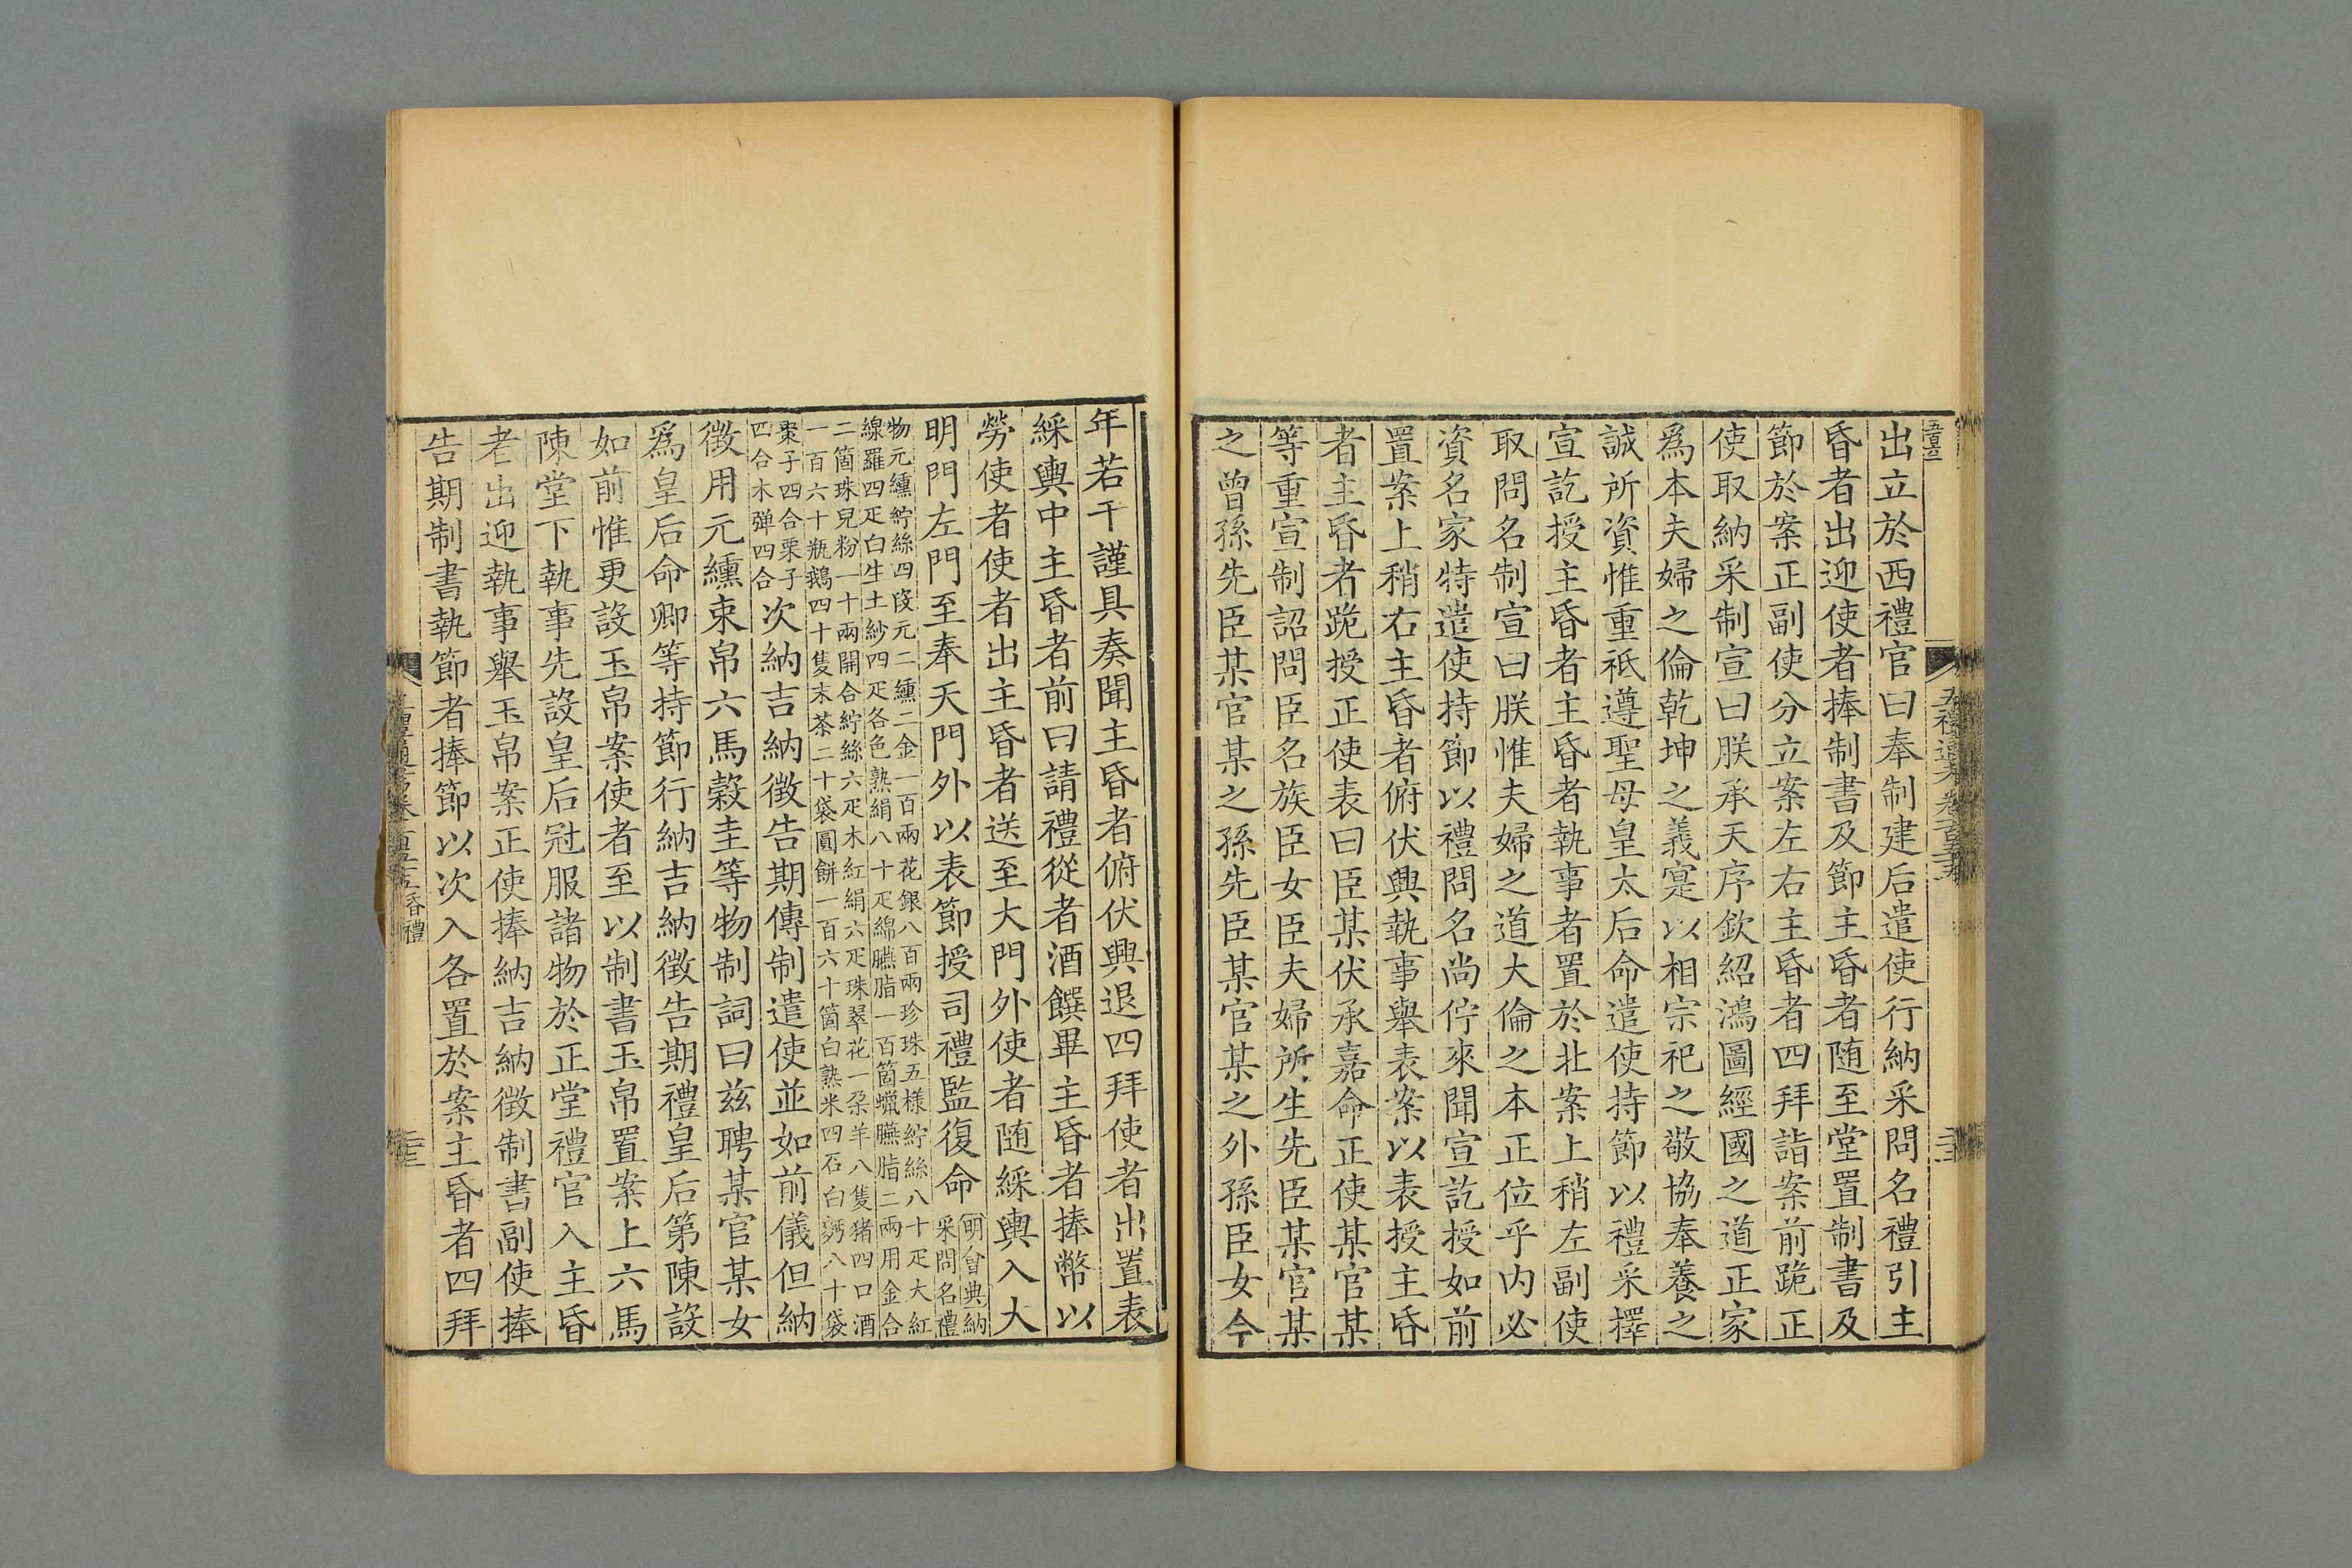 出立於西禮官曰奉制建后遣使行納采問名禮引主
昏者出迎使者捧制書及節主昏者随至堂置制書及
節於案正副使分立案左右主昏者四拜詣案前跪正
使取納采制宣曰朕承天序欽紹鴻圖經國之道正家
爲本夫婦之倫乾坤之義寔以相宗祀之敬協奉養之
誠所資惟重祗遵聖母皇太后命遣使持節以禮采擇
宣訖授主昏者主昏者執事者置於北案上稍左副使
取問名制宣曰朕惟夫婦之道大倫之本正位乎内必
資名家特遣使持節以禮問名尚佇來聞宣訖授如前
置案上稍右主昏者俯伏興執事舉表案以表授主昏
者主昏者跪授正使表曰臣某伏承嘉命正使某官某
等重宣制詔問臣名族臣女臣夫婦所生先臣某官某
之曾孫先臣某官某之孫先臣某官某之外孫臣女今
年若干謹具奏聞主昏者俯伏興退四拜使者出置表
綵輿中主昏者前曰請禮從者酒饌畢主昏者捧幣以
勞使者使者出主昏者送至大門外使者随綵輿入大
明門左門至奉天門外以表節授司禮監復命明會典納
采問名禮
物元纁紵絲四段元二纁二金一百兩花銀八百兩珍珠五樣紵絲八十疋大紅
線羅四疋白生土紗四疋各色熟絹八十疋綿臙脂一百箇蠟臙脂二兩用金合
二箇珠兒粉一十兩開合紵絲六疋木紅絹六疋珠翠花一朶羊八隻猪四口酒
一百六十瓶鵝四十隻末茶二十袋圓餅一百六十箇白熟米四石白麪八十袋
棗子四合栗子
四合木弹四合次納吉納徵告期傳制遣使並如前儀但納
徵用元纁束帛六馬穀圭等物制詞曰兹聘某官某女
爲皇后命卿等持節行納吉納徵告期禮皇后第陳設
如前惟更設玉帛案使者至以制書玉帛置案上六馬
陳堂下執事先設皇后冠服諸物於正堂禮官入主昏
者出迎執事舉玉帛案正使捧納吉納徵制書副使捧
告期制書執節者捧節以次入各置於案主昏者四拜